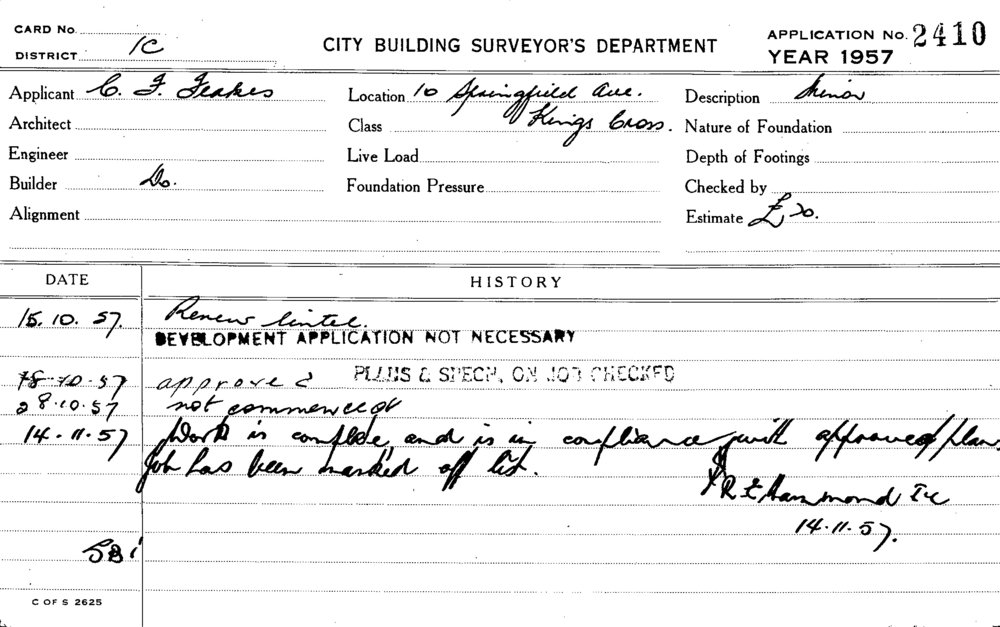 CARD No.
DISTRICT 1C
CITY BUILDING SURVEYOR'S DEPARTMENT
APPLICATION No. 2410
YEAR 1957
Applicant C. F. Feakes
Location 10 Springfield Ave.
Kings Cross.
Description Minor
Architect
Class
Nature of Foundation
Engineer
Live Load
Depth of Footings
Builder Do.
Foundation Pressure
Checked by
Alignment
Estimate £20.
DATE
HISTORY
15.10.57. Renew lintel.
DEVELOPMENT APPLICATION NOT NECESSARY
18.10.57 approved PLANS & SPECN. ON JOB CHECKED
28.10.57 not commenced
14.11.57 Work is complete, and is in compliance with approved plan,
Job has been marked off list.
Hammond
14.11.57.
SBi
C OF S 2625